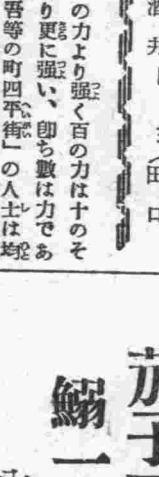 酒井
田口
の力より強く百の力は十のそ
り更に強い、卽ち數は力であ
吾等の町四平街』の人士は均
茄子
鰯一